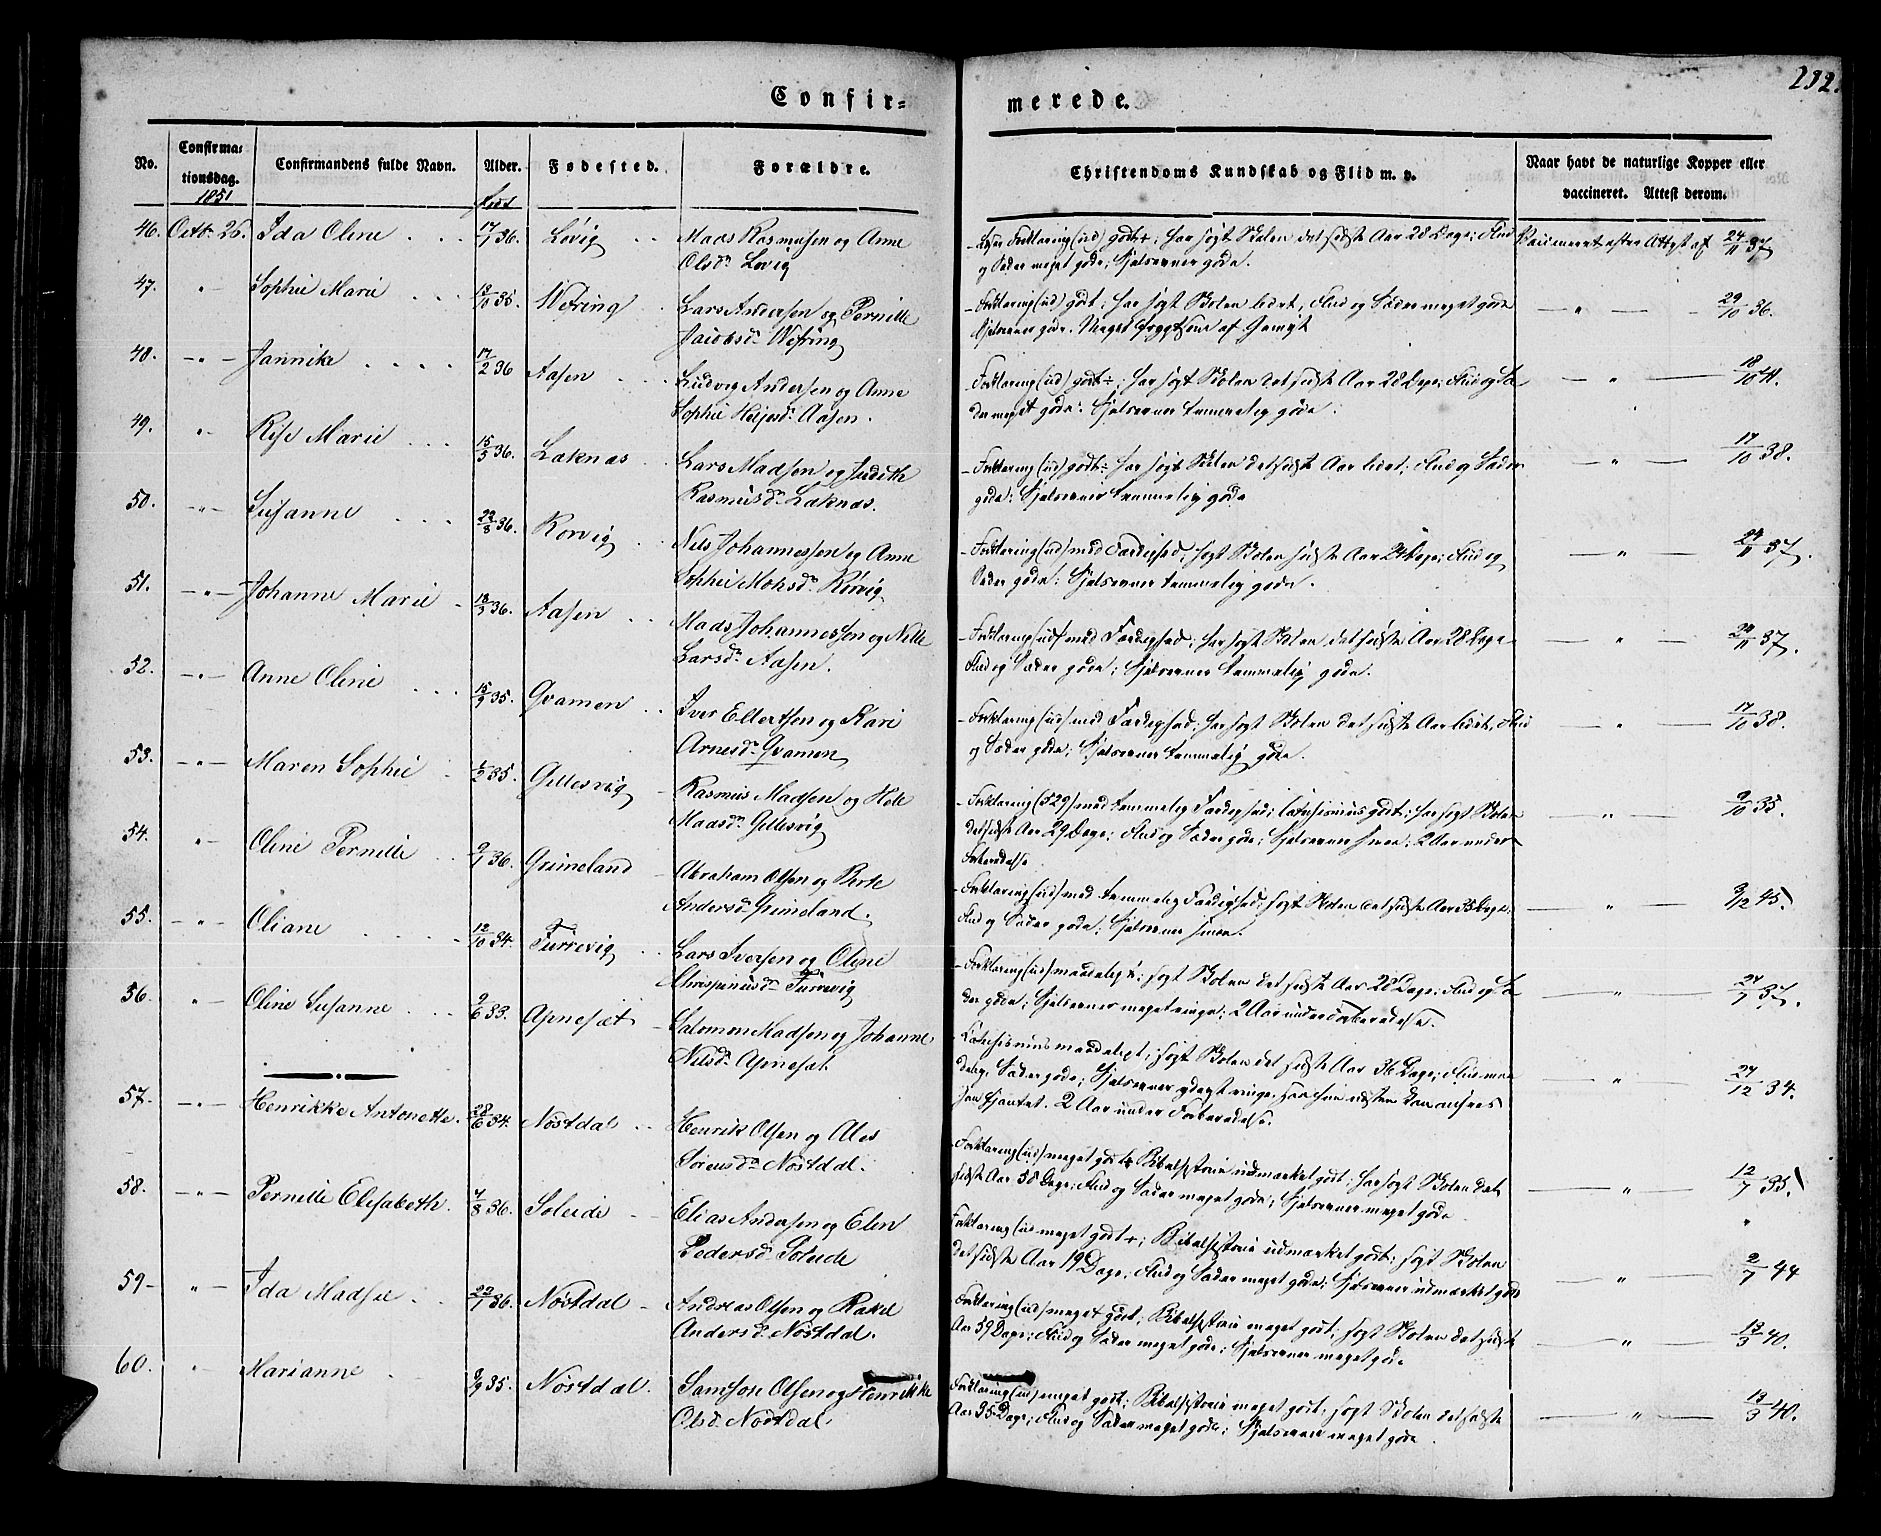 232.
Confir=
merede.
No.
Confirma=
tionsdag.
1851
Confirmandens fulde Navn.
Alder.
født
Fødested.
Forældre.
Christendoms Kundskab og Flid m. v.
Naar havt de naturlige Kopper eller
vaccineret. Attest derom.
46. Octb. 26. Ida Oline . . . 17/1 36. Løvig . . Mads Rasmusen og Anne
Olsdr Løvig
godt+; har søgt Skolen det sidste Aar 28 Dage; Flid
og Sæder meget gode; Sjelsevner gode.
Vaccineret efter Attest af 24/11 37
47. " Sophie Marie . . . 13/10 35. Vefring . Lars Andersen og Pernille
Jacobsdr Vefring
Forklaring (ud) godt; har søgt Skolen lidet; Flid og Sæder meget gode
Sjelsevner gode.
— " — 29/10 36.
48. — " — Jannike . . . . 17/2 36 Aasen . . . Ludvig Andersen og Anne
Sophie Aasen.
Forklaring (ud) godt÷; har søgt Skolen det sidste Aar 28 Dage; Flid og Sæ-
der meget gode; Sjelsevner temmelig gode.
— " — 18/10 41.
49. " Marie . . . 15/5 36. Laknæs . . Lars Madsen og Judithe
Rasmusdr Laknæs.
Forklaring (ud) godt÷ har søgt Skolen det sidste Aar lidet; Flid og Sæder
gode; Sjelsevner temmelig gode
— " — 17/10 38.
50. — " — Susanne . . . 22/3 36. Korvig . . Nils Johannessen og Anne
Sophie
Forklaring (ud) med Færdighed; søgt Skolen sidste Aar 24 Dage; Flid og
Sæder gode; Sjelsevner temmelig gode.
— " — 24/11 37.
51. — " — Johanne Marie . 18/3 36. Aasen . . Mads Johannessen og Nille
Larsdr Aasen.
Forklaring (ud) med Færdighed; har søgt Skolen det sidste Aar 28 Dage
Flid og Sæder gode; Sjelsevner temmelig gode.
— " — 24/11 37.
52. — " — Anne Oline . . . 15/9 35. Gvamen . . Iver Ellertsen og Kari
Arnesdr Gvamen
Forklaring (ud) med Færdighed; har søgt Skolen det sidste Aar lidet, Flid
og Sæder gode; Sjelsevner temmelig gode.
— " — 17/10 38.
53. — " — Maren Sophie . 35. Gillesvig — Rasmus Madsen og
Madsdr Gillesvig
Forklaring (529) med temmelig Færdighed; Catechismus godt; har søgt Skolen
det sidste Aar 29 Dage; Flid og Sæder gode; Sjelsevner smaa; 2 Aar under
Forberedelse.
— " — 9/10 35.
54. " Oline Pernille . . 9/1 36. Grimeland — Abraham Olsen og Berte
Andersdr Grimeland.
Forklaring (ud) med temmelig Færdighed; søgt Skolen det sidste Aar 35 Dage;
Flid og Sæder gode; Sjelsevner smaa.
— " — 3/12 45.
55. — " — Oliane . . . . 12/10 34. Furrevig . . Lars Iversen og Oline
Chrispinusdr Furrevig
Forklaring (ud) maadelig; søgt Skolen det sidste Aar 28 Dage; Flid og Sæ-
der gode; Sjelsevner meget ringe; 2 Aar under Forberedelse.
— " — 24/7 37.
56. " Oline Susanne . . . 9/6 33. Apnesæt — Salomon Madsen og Johanne
Nilsdr Apnesæt.
Catechismus maadeligt; søgt Skolen det sidste Aar 36 Dage; Flid maa-
delig, Sæder gode; Sjelsevner yderst ringe,
2 Aar under Forberedelse.
— " — 24/12 34.
57. — " — Henrikke Antonette. 28/6 34. Nøstdal . . Henrik Olsen og Ales
Sørensdr Nøstdal.
Forklaring (ud) meget godt+ Bibelhistorie udmærket godt; har søgt Skolen det
sidste Aar 58 Dage; Flid og Sæder meget gode; Sjelsevner meget gode.
— " — 12/7 35.
58. — " — Pernille Elisabeth. 4/8 36. Soleide — Elias Andersen og Elen
Pedersdr Soleide
Forklaring (ud meget godt+; Bibelhistorie udmærket godt; søgt Skolen
det sidste Aar 19 Dage; Flid og Sæder meget gode; Sjelsevner udmærket gode
— " — 2/7 44
59 — " Ida Madsie . . 22/1 36. Nøstdal — Andreas Olsen og Rakel
Andersdr Nøstdal.
Forklaring (ud) meget godt; Bibelhistorie meget godt; søgt Skolen det sidste
Aar 39 Dage; Flid og Sæder meget gode; Sjelsevner meget gode
— " — 13/3 40.
60. " Marianne . 35. Nøstdal. Samson Olsen og Henrikke
Olsdr Nøstdal
Forklaring (ud) meget godt; Bibelhistorie meget godt; søgt Skolen det sidste
Aar 35 Dage; Flid og Sæder meget gode; Sjelsevner meget gode.
— " — 13/3 40.